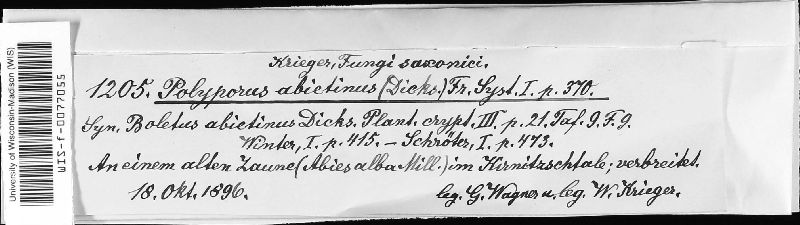 University of Wisconsin-Madison (WIS)
WIS-f-0077055
Krieger, Fungi saxonici.
1205. Polyporus abietinus (Dicks.) Fr. Syst. I. p. 370.
Syn. Boletus abietinus Dicks. Plant. crypt. III. p. 21. Taf. 9. F. 9.
Winter, I. p. 415. – Schröter, I. p. 473.
An einem alten Zaune (Abies alba Mill.) im Kirnitzschtale; verbreitet.
18. Okt. 1896.
leg. G. Wagner u. leg. W. Krieger.